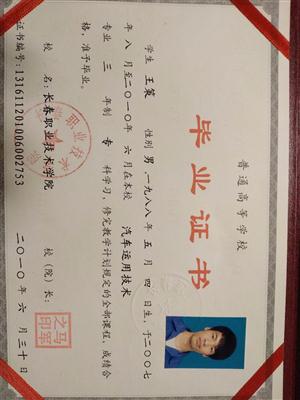 普通高等学校
毕业证书
学生 王策 性别 男,一九八八年 五 月 四 日生,于二〇〇七
年 八 月至二〇一〇年 六 月在本校 汽车运用技术
专业 三 年制 专 科学习,修完教学计划规定的全部课程,成绩合
格,准予毕业。
校 名:长春职业技术学院 校(院)长:
马军之印
证书编号:131611201006002753 二〇一〇年 六 月 三十日